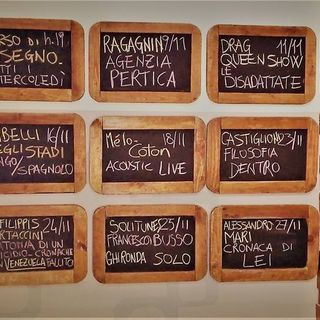 RSO DI h.19
SEGNO
TTI
ERCOLEDÌ
RAGAGNIN 9/11
AGENZIA
PERTICA
DRAG 11/11
QUEEN SHOW
LE
DISADATTATE
BELLI 16/11
EGLI STADI
NGO/SPAGNOLO
Mélo- 18/11
Coton
ACOUSTIC LIVE
CASTIGLIONI 23/11
FILOSOFIA
DENTRO
FILIPPIS 24/11
RTACCINI
DI UN
ICIDIO - CRONACHE
VENEZUELA FALLITO
SOLITUNES 25/11
FRANCESCO BUSSO
GHIRONDA SOLO
ALESSANDRO 27/11
MARI
CRONACA DI
LEI